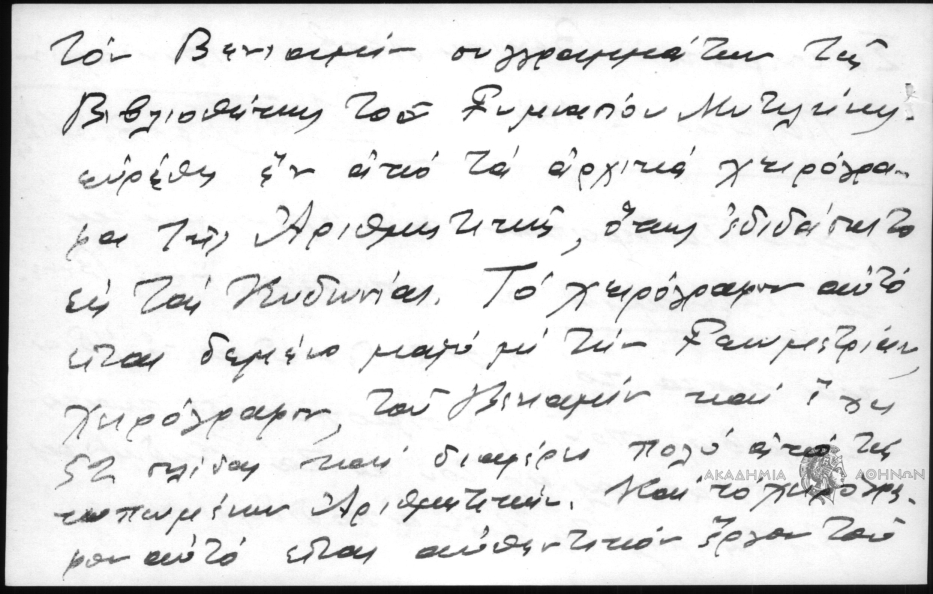 τῶν Βενιαμίν συγγραμμάτων τῆς
Βιβλιοθήκης τοῦ Γυμνασίου Μυτιλήνης.
εὑρέθη ἕν ἀπό τά ἀρχικά χειρόγρα-
φα τῆς Ἀριθμητικῆς, ὅπως ἐδιδάσκετο
εἰς τάς Κυδωνίας. Τό χειρόγραφον αὐτό
εἶναι δεμένο μαζύ μέ τήν Γεωμετρίαν,
χειρόγραφον, τοῦ Βενιαμίν καί ἔχει
52 σελίδας καί διαφέρει πολύ ἀπό τῆς
τυπωμένης Ἀριθμητικῆς. Καί τό χειρόγρα-
φον αὐτό εἶναι αὐθεντικόν ἔργον τοῦ
ΑΚΑΔΗΜΙΑ ΑΘΗΝΩΝ